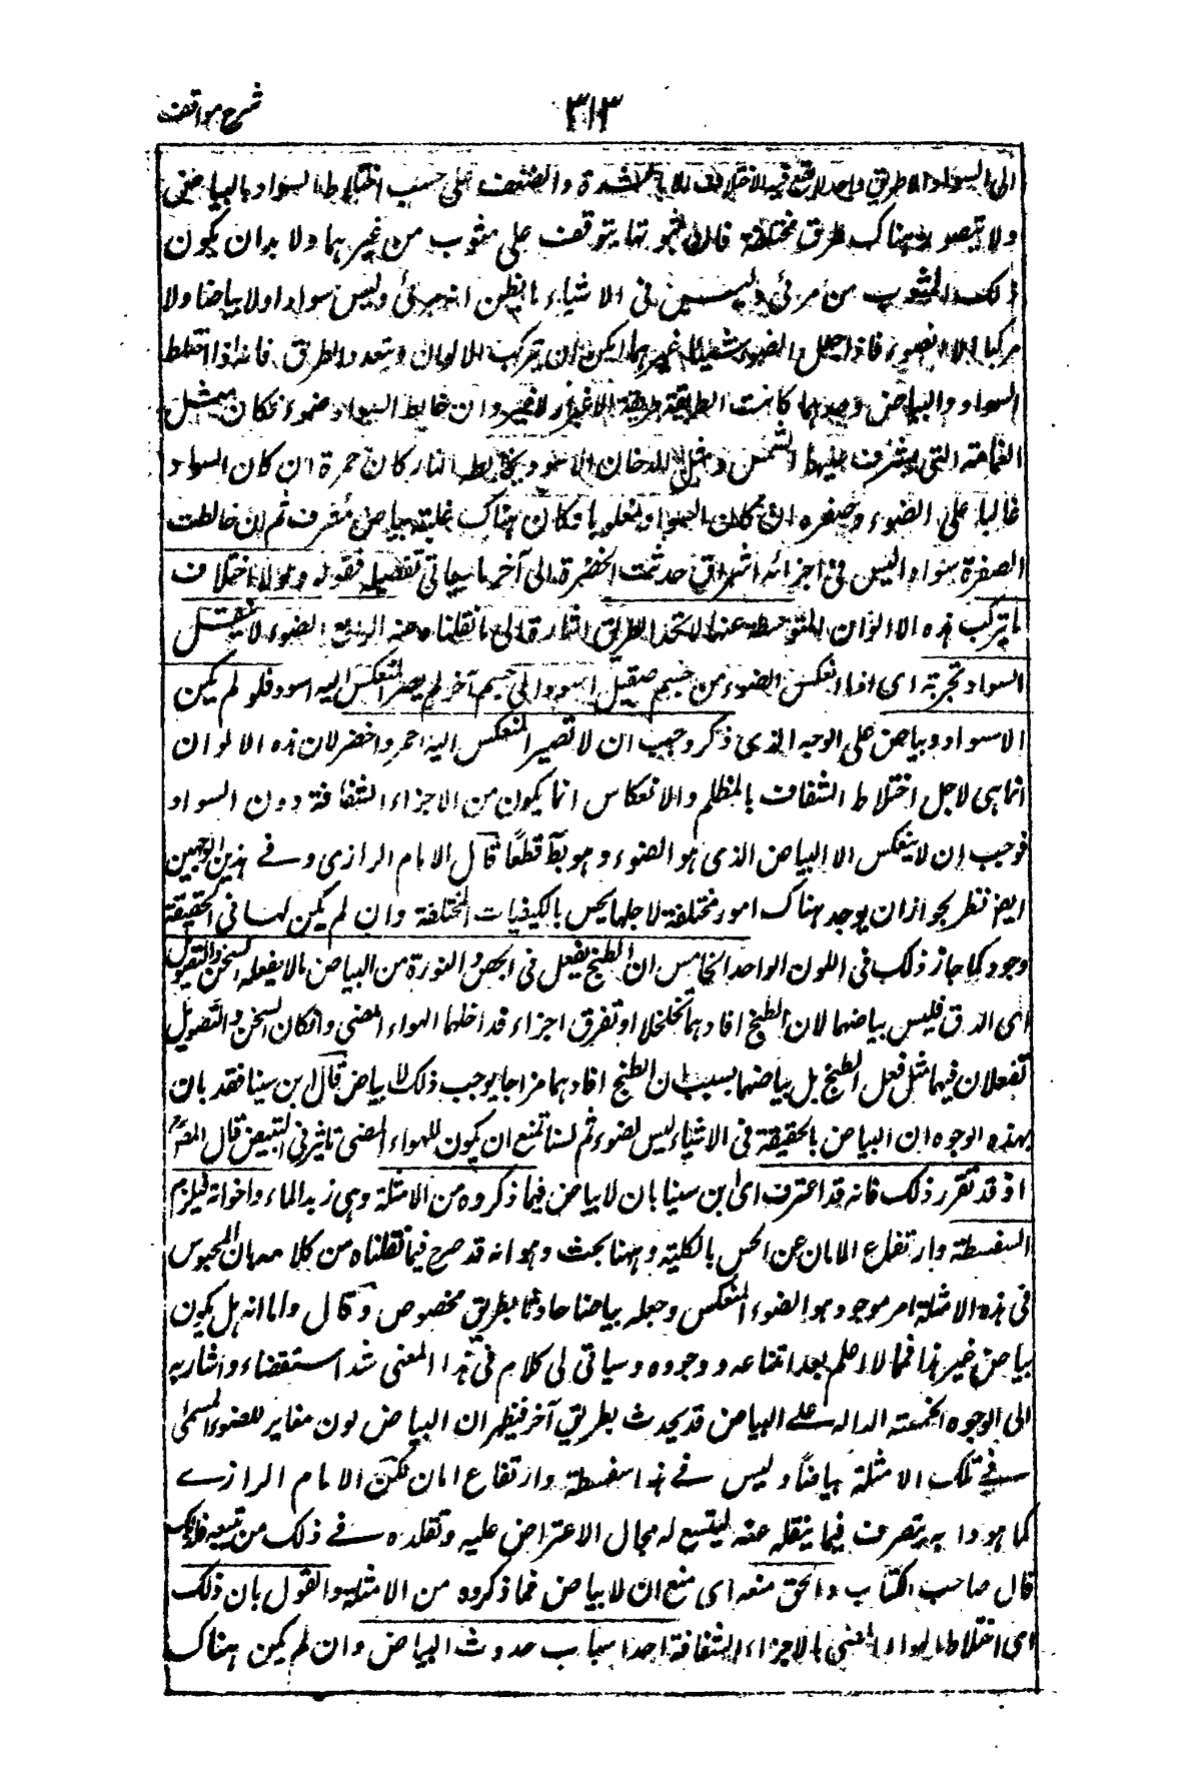 ٣١٣
شرح مواقف
الى السواد الا طريق واحد لا يقع فيه الاختلاف الا بالشدة والضعف على حسب اختلاط السواد بالبياض
ولا يتصور هناك طرق مختلفة فان ثبوتها يتوقف على مشوب من غيرهما ولا بد ان يكون
ذلك المشوب من مرئى وليس فى الاشياء ما يظن انه مرئى وليس سوادا ولا بياضا ولا
مركبا الا الضوء فاذا جعل الضوء شيئا غيرهما امكن ان يتركب الالوان ويتعدد الطرق فانه اذا اختلط
السواد والبياض وحدهما كانت الطريقة طريقة الاغبرار لا غير وان خالط السواد ضوء فكان مثل
الغمامة التى يشرف عليها الشمس ومثل الدخان الاسود يخالطه النار كان حمرة ان كان السواد
غالبا على الضوء وصفرة ان كان السواد مغلوبا وكان هناك غلبة بياض مشرف ثم ان خالطت
الصفرة سوادا ليس فى اجزائه اشراق حدثت الخضرة الى آخر ما سيأتى تفصيله فقوله ولولا اختلاف
ما يتركب هذه الالوان المتوسطة عنها لاتحد الطريق اشارة الى ما نقلناه عنه الرابع الضوء لا يقبل
السواد تجربة اى اذا انعكس الضوء من جسم صقيل اسود الى جسم آخر لم يصر المنعكس اليه اسود فلو لم يكن
الا سواد وبياض على الوجه الذى ذكر وجب ان لا تصير المنعكس اليه احمر واخضر لان هذه الالوان
انما هى لاجل اختلاط الشفاف بالمظلم والانعكاس انما يكون من الاجزاء الشفافة دون السواد
فوجب ان لا ينعكس الا البياض الذى هو الضوء وهو بط قطعًا قال الامام الرازى وفى هذين الوجهين
ايضا نظر لجواز ان يوجد هناك امور مختلفة لاجلها يحس بالكيفيات المختلفة وان لم يكن لها فى الحقيقة
وجود كما جاز ذلك فى اللون الواحد الخامس ان الطبخ يفعل فى الجص والنورة من البياض ما لا يفعله السحق والتصويل
اى الدق فليس بياضهما لان الطبخ افادهما تخلخلا او تفرق اجزاء فداخلهما الهواء المضئ والا كان السحق والتصويل
تفعلان فيهما مثل فعل الطبخ بل بياضهما بسبب ان الطبخ افادهما مزاجا يوجب ذلك لابياض قال ابن سينا فقد بان
بهذه الوجوه ان البياض بالحقيقة فى الاشياء ليس لضوء ثم لسنا نمنع ان يكون للهواء المضئ تاثير فى التبييض قال المصر
اذ قد تقرر ذلك فانه قد اعترف اى ابن سينا بان لا بياض فيما ذكروه من الامثلة وهى زبد الماء واخوانه فيلزم
السفسطة وارتفاع الامان عن الحس بالكلية وههنا بحث وهو انه قد صرح فيما نقلناه من كلامه بان المحبوس
فى هذه الامثلة امر موجود هو الضوء المنعكس وجعله بياضا حادثا بطريق مخصوص وقال واما انه هل يكون
بياض غير هذا فمما لا اعلم بعد امتناعه ووجوده وسياتى لى كلام فى هذا المعنى شد استقضاء واشار به
الى الوجوه الخمسة الدالة على البياض قد يحدث بطريق آخر فيظهر ان البياض لون مغاير للضوء المسمى
فى تلك الامثلة بياضًا وليس فى هذا سفسطة وارتفاع امان لكن الامام الرازى
كما هو دابه يتصرف فيما ينقله عنه ليتسع له مجال الاعتراض عليه وتقلده فى ذلك من تبعه فلذلك
قال صاحب الكتاب والحق منعه اى منع ان لا بياض فيما ذكروه من الامثلة والقول بان ذلك
اى اختلاط الهواء المضئ بالاجزاء الشفافة احد اسباب حدوث البياض وان لم يكن هناك